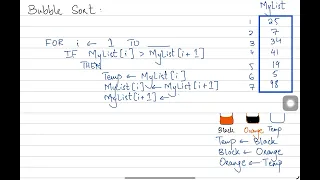 Bubble Sort:
FOR i ← 1 TO
IF MyList[i] > MyList[i+1]
THEN
Temp ← MyList[i]
MyList[i] ← MyList[i+1]
MyList[i+1] ←
MyList
1 25
2 7
3 34
4 41
5 19
6 5
7 98
Black Orange Temp
Temp ← Black
Black ← Orange
Orange ← Temp